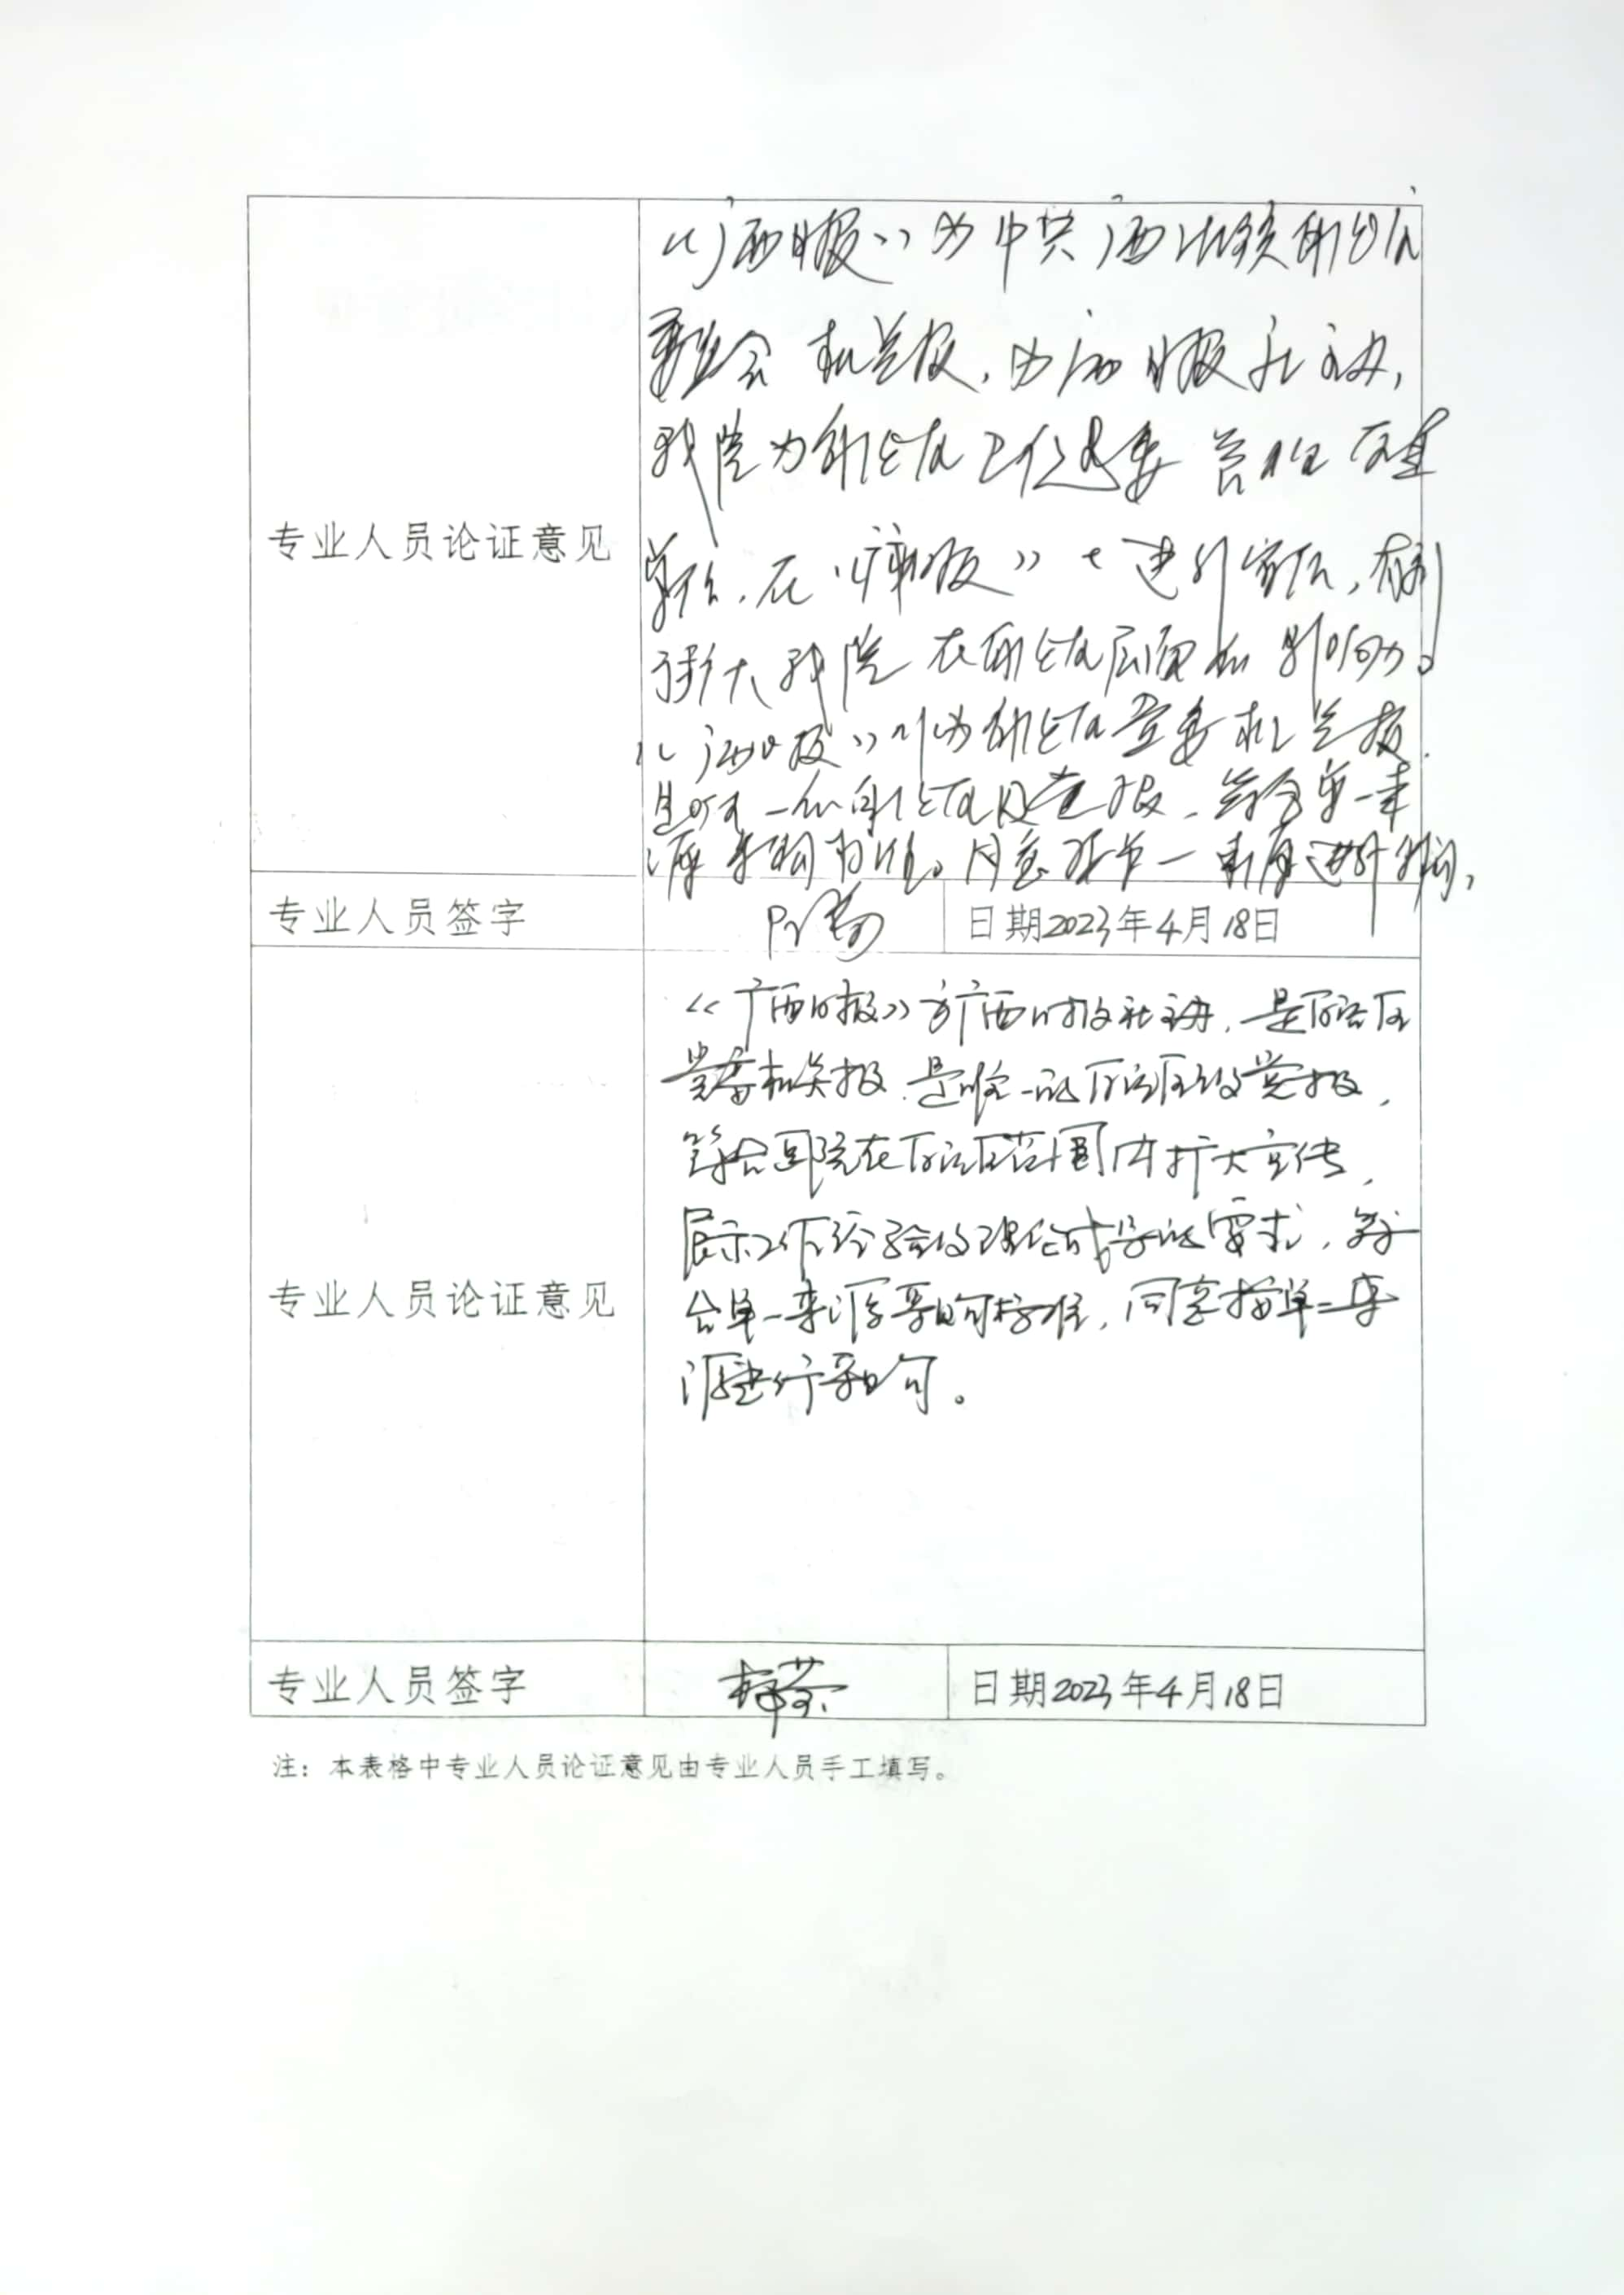 《广西日报》为中共广西壮族自治区
委员会机关报,由广西日报社主办,
我院为自治区卫健委 直属
单位,在《广西日报》上进行宣传,有利
于扩大我院在自治区层面的影响力。
《广西日报》作为自治区党委机关报
是唯一的自治区级党报,符合单一来
源采购标准。同意按单一来源进行采购,
专业人员论证意见
专业人员签字
日期2023年4月18日
《广西日报》为广西日报社主办,是自治区
党委机关报,是唯一的自治区级党报,
符合医院在自治区范围内扩大宣传,
展示工作经验及理论成果的要求,符
合单一来源采购标准,同意按单一来
源进行采购。
专业人员论证意见
专业人员签字
日期2023年4月18日
注:本表格中专业人员论证意见由专业人员手工填写。